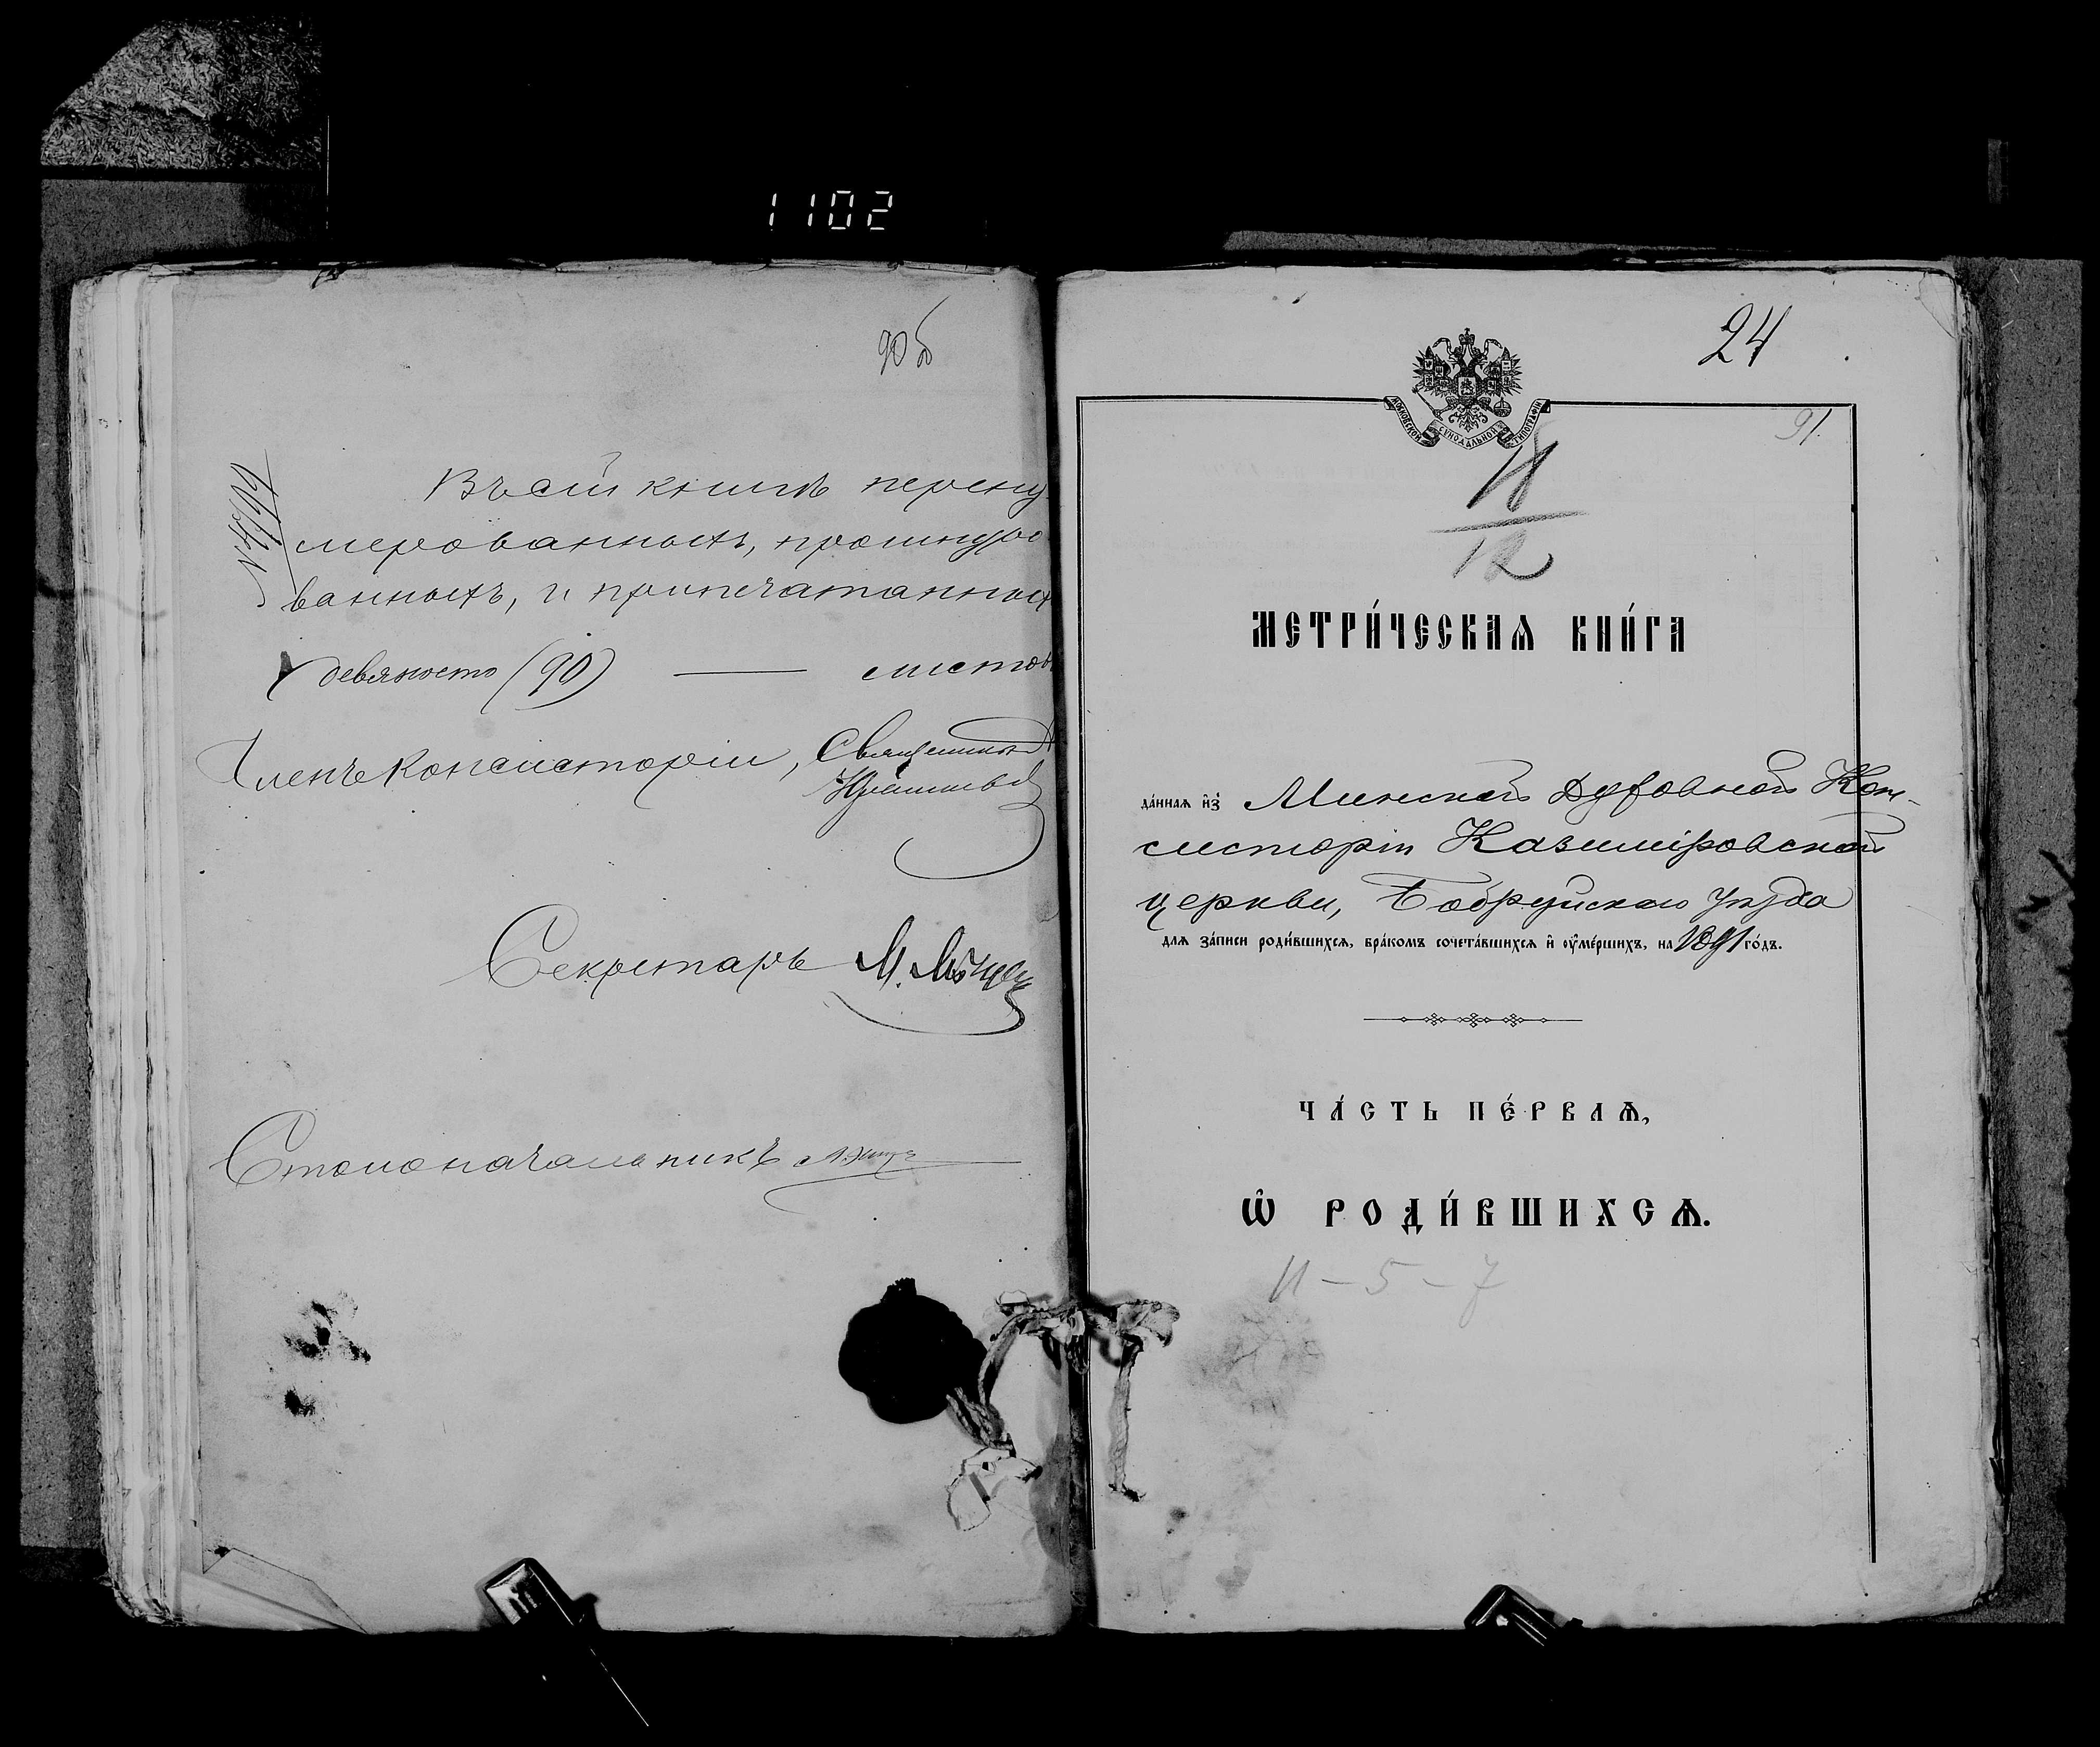 1102
90б
№ 4799
Въ сей книгѣ перену-
мерованныхъ, прошнуро
ванныхъ, и припечатанных
девяносто (90) — листов
Членъ Консисторіи, Священникъ
Секретарь М.
Столоначальникъ
24
91.
МОСКОВСКОЙ СУНОДАЛЬНОЙ ТИПОГРАФІИ
12
МЕТРИ́ЧЕСКАѦ КНИ́ГА
да́ннаѧ и҆з̾ Минской Духовной Кон-
систоріи Казимировской
церкви, Бобруйскаго уѣзда
длѧ за́писи роди́вшихсѧ, бра́комъ сочета́вшихсѧ и҆ ѹ҆ме́ршихъ, на 1891 го́дъ.
ЧА́СТЬ ПЕ́РВАѦ,
Ѡ҆ РОДИ́ВШИХСѦ.
11 – 5 – 7